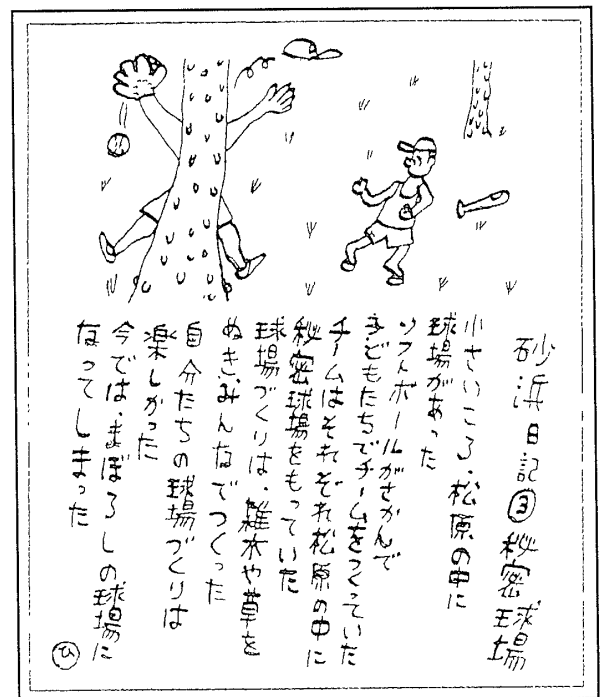 砂浜日記③秘密球場
小さいころ、松原の中に
球場があった
ソフトボールがさかんで
子どもたちでチームをつくっていた
チームはそれぞれ松原の中に
秘密球場をもっていた
球場づくりは、雑木や草を
ぬき、みんなでつくった
自分たちの球場づくりは
楽しかった
今では、まぼろしの球場に
なってしまった
ひ